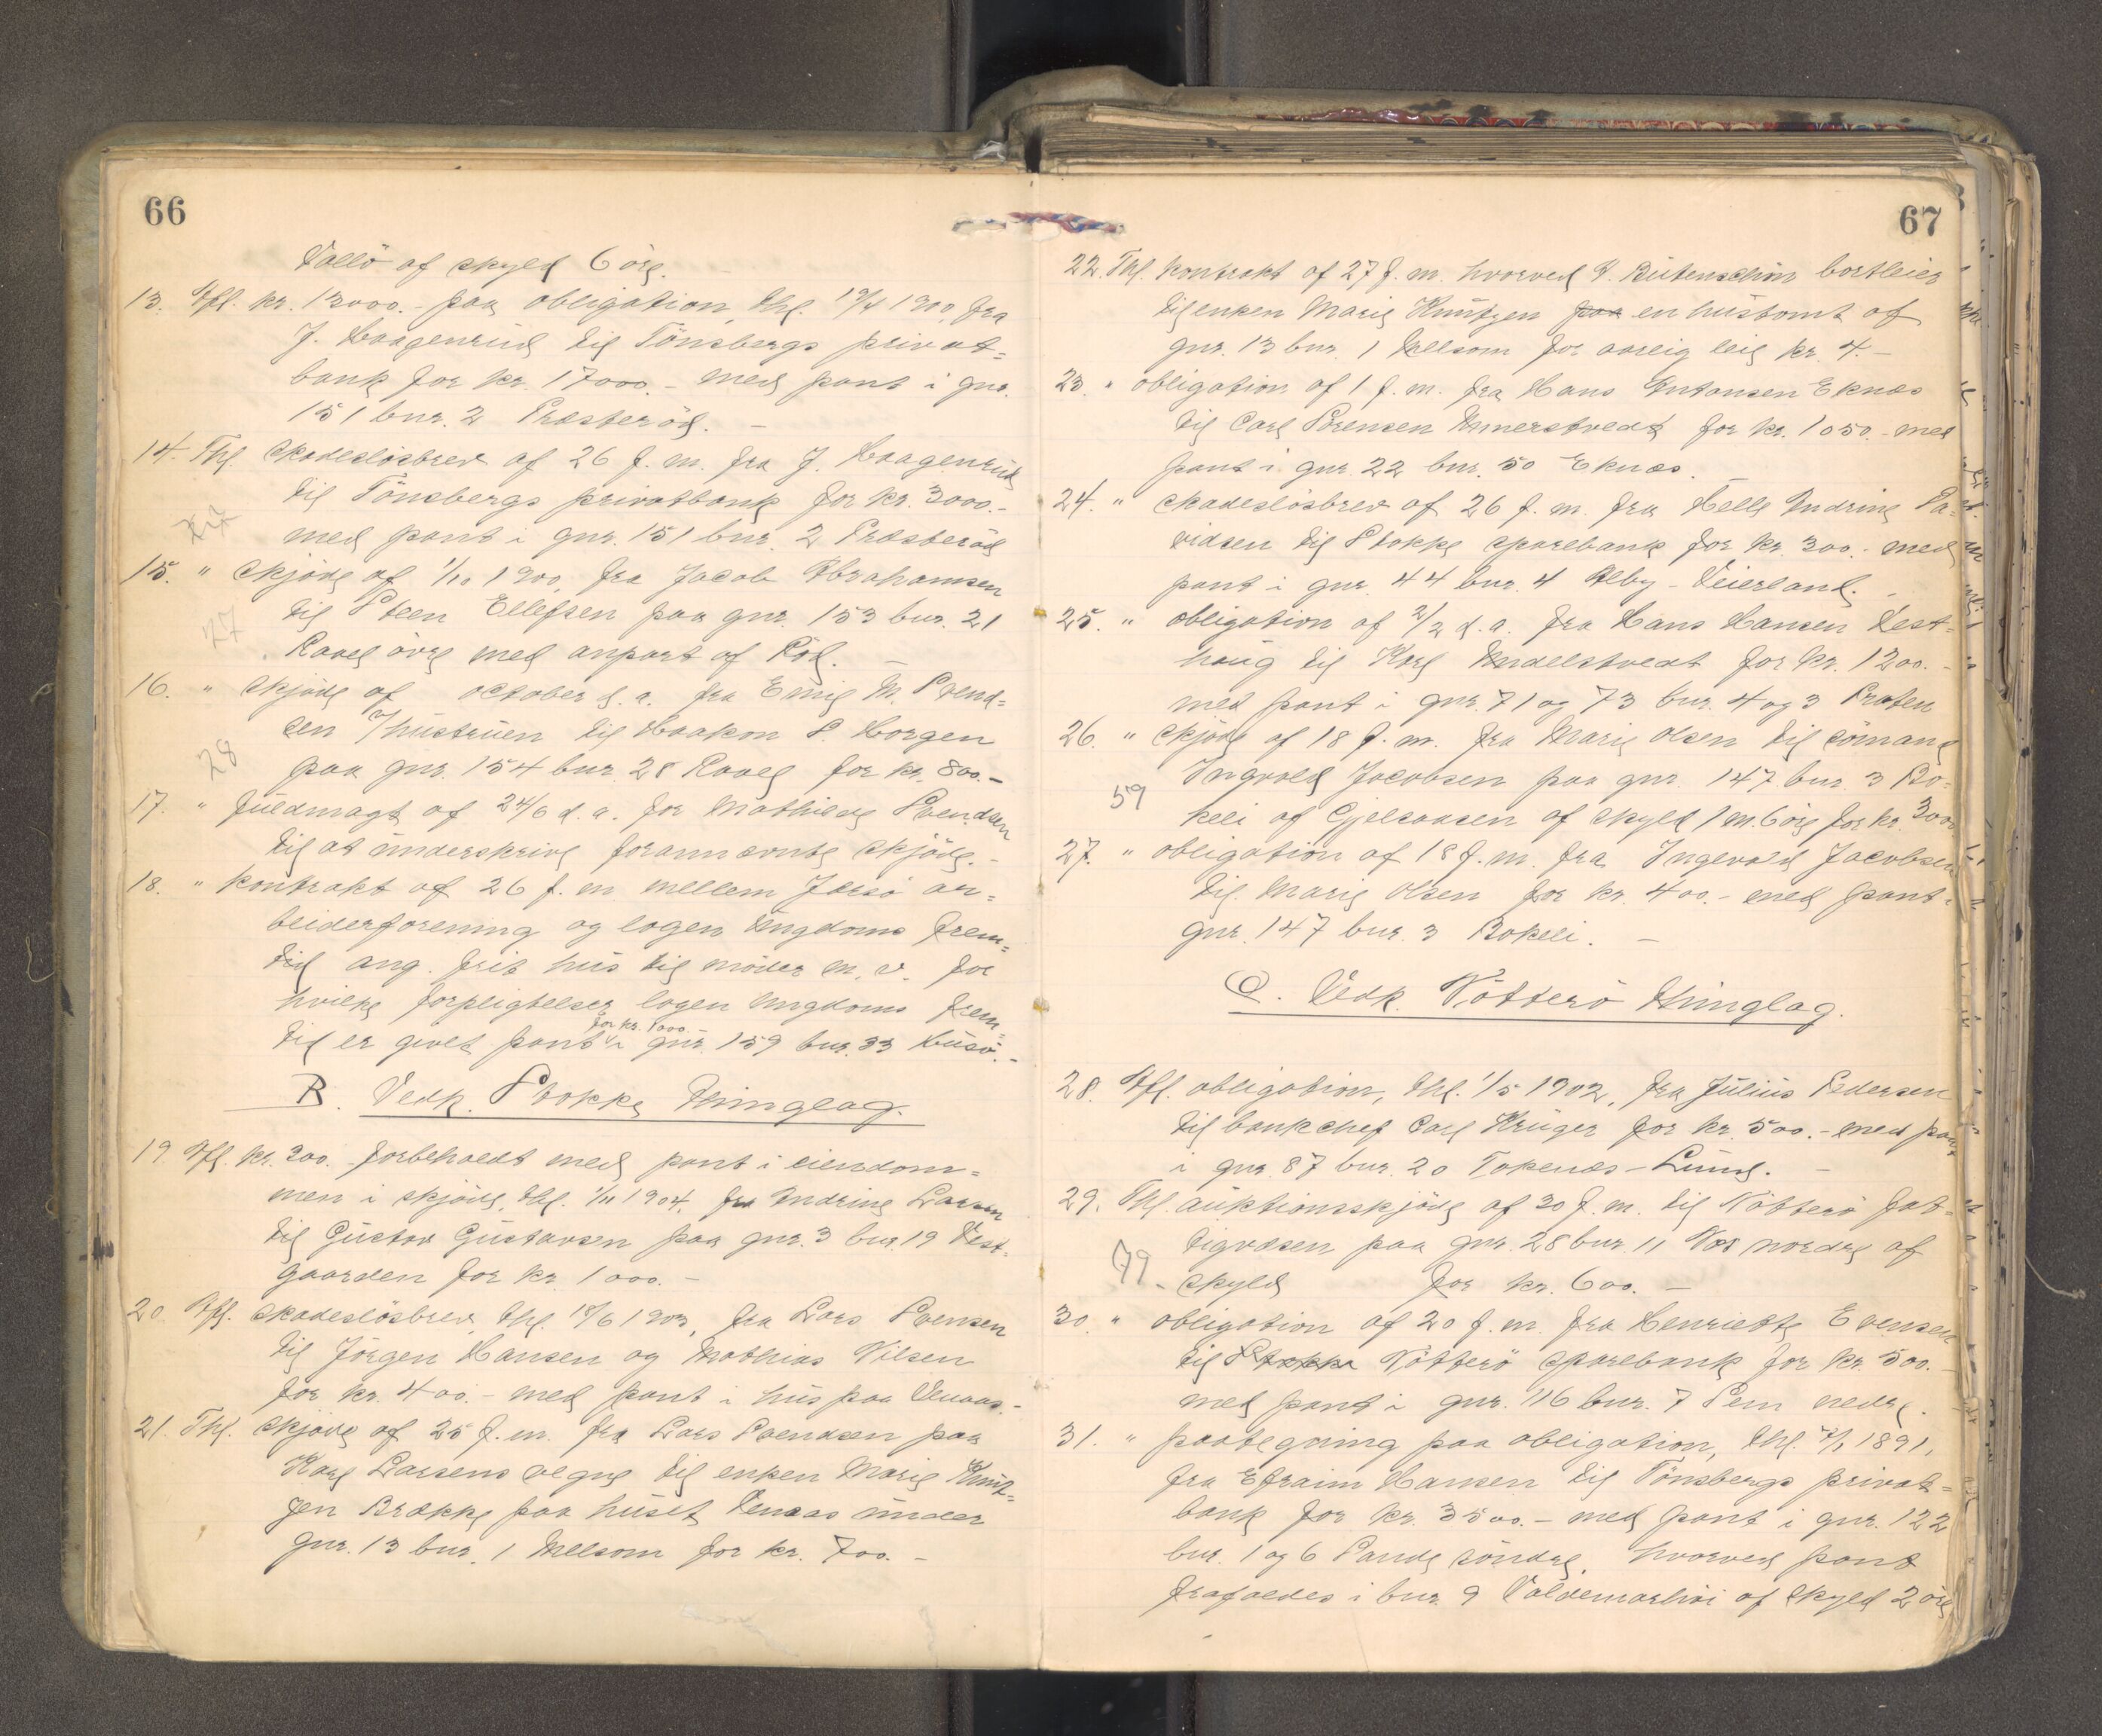 66
Vallö af skyld 6 öre.
13. Afl. kr. 13000.- paa obligation, thl. 19/4 1900, fra
J. Haagenrud til Tönsbergs privat=
bank for kr. 17000.- med pant i gnr.
151 bnr. 2 Præsteröd. -
14. Thl. skadeslösbrev af 26 f. m. fra J. Haagenrud
til Tönsbergs privatbank for kr. 3000.-
med pant i gnr. 151 bnr. 2 Præsteröd
15. " skjöde af 1/10 1900, fra Jacob Abrahamsen
til Steen Ellefsen paa gnr. 153 bnr. 21
27
Raael övre med anpart af Röd. -
16. " skjöde af october d. a. fra Emil M. Svend=
sen /hustruen til Haakon S. Horgen
28
paa gnr. 154 bnr. 28 Raael for kr. 800.-
17. " fuldmagt af 24/6 d. a. for Mathilde Svendsen
til at underskrive forannævnte skjöde.-
18. " kontrakt af 26 f. m. mellem Jersö ar=
beiderforening og logen Ungdoms frem=
tid ang. frit hus til möder m. v. for
hvilke forpligtelser logen Ungdoms frem=
for kr. 1000.-
tid er givet pant i gnr. 159 bnr. 33 Husö.-
B. Vedk. Stokke Thinglag.
19. Afl. kr. 300.- forbeholdt med pant i eiendom=
men i skjöde, thl. 1/11 1904, fra Andrine Larsen
til Gustav Gustavsen paa gnr. 3 bnr. 19 Vest=
gaarden for kr. 1000.-
20. Afl. skadeslösbrev, thl. 18/6 1903, fra Lars Svensen
til Jörgen Hansen og Mathias Nilsen
for kr. 400.- med pant i hus paa Venaas.-
21. Thl. skjöde af 25 f. m. fra Lars Svendsen paa
Karl Larsens vegne til enken Marie Knut=
zen Brække paa huset Venaas under
gnr. 13 bnr. 1 Melsom for kr. 700.-
67
22. Thl. kontrakt af 27 f. m. hvorved H. Butenschön bortleier
til enken Marie Knutzen paa en hustomt af
gnr. 13 bnr. 1 Melsom for aarlig leie kr. 4.-
23. " obligation af 1 f. m. fra Hans Antonsen Eknæs
til Carl Sörensen Ummerstvedt for kr. 1050.- med
pant i gnr. 22 bnr. 50 Eknæs.
24. " skadeslösbrev af 26 f. m. fra Helle Andrine Da=
vidsen til Stokke sparebank for kr. 300.- med
pant i gnr. 44 bnr. 4 Alby - Veierland. -
25. " obligation af 2/2 d. a. fra Hans Hansen Vest=
haug til Karl Undelstvedt for kr. 1200.-
med pant i gnr. 71 og 73 bnr. 4 og 3 Præsten
26. " skjöde af 18 f. m. fra Marie Olsen til sömand
Ingvald Jacobsen paa gnr. 147 bnr. 3 Bö=
59
keli af Gjelsaasen af skyld 1 m. 6 öre for kr. 3000
27. " obligation af 18 f. m. fra Ingevald Jacobsen
til Marie Olsen for kr. 400.- med pant
gnr. 147 bnr. 3 Bökeli. -
C. Vedk. Nötterö Thinglag.
28. Afl. obligation, thl. 1/5 1902, fra Julius Pedersen
til bankchef Carl Krüger for kr. 500.- med pant
i gnr. 87 bnr. 20 Tokenæs - Lund. -
29. Thl. auktionsskjöde af 30 f. m. til Nötterö fat=
tigvæsen paa gnr. 28 bnr. 11 Nes nordre af
79
skyld for kr. 600. -
30. " obligation af 20 f. m. fra Henriette Evensen
til Stokke Nötterö sparebank for kr. 500.-
med pant i gnr. 116 bnr. 7 Sem nedre.
31. " paategning paa obligation, thl. 7/1 1891,
fra Efraim Hansen til Tönsbergs privat=
bank for kr. 3500.- med pant i gnr. 122
bnr. 1 og 6 Sande söndre, hvorved pant
frafaldes i bnr. 9 Valdemarhöi af skyld 2 öre